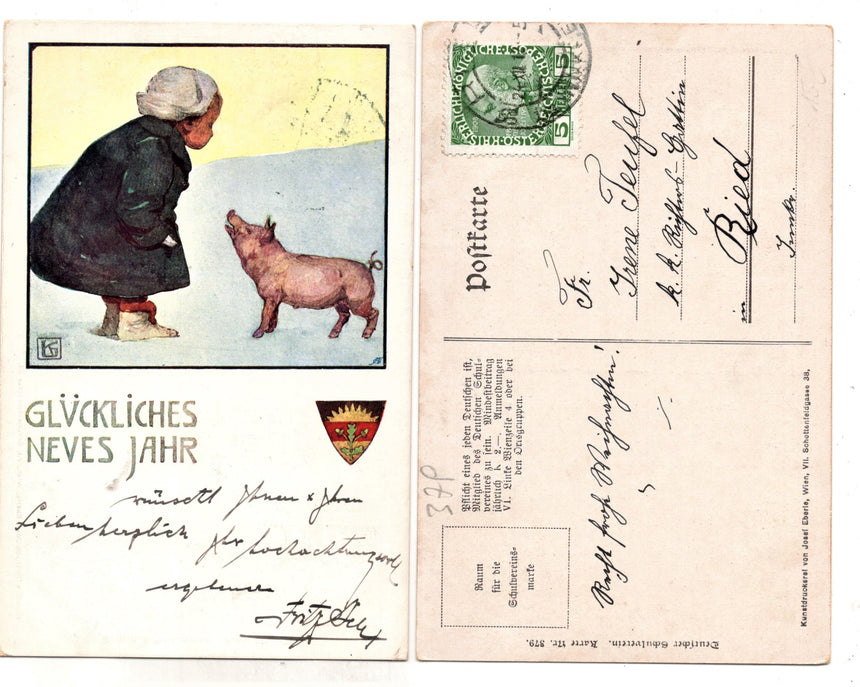 GLÜCKLICHES
NEVES JAHR
wünscht Ihnen & Ihren
Lieben herzlich Ihr hochachtungsvoll
ergebener
Fritz
KAISERLICHE KÖNIGLICHE ÖSTERREICHISCHE POST
5 5
Postkarte
Fr.
Irene Teufel
k. k. Richters-Gattin
in Ried
Innkr.
Pflicht eines jeden Deutschen ist,
Mitglied des Deutschen Schul-
vereines zu sein. Mindestbeitrag
jährlich K 2.—. Anmeldungen
VI. Linke Wienzeile 4 oder bei
den Ortsgruppen.
37P
Raum
für die
Schulvereins-
marke
Recht frohe Weihnachten!
Deutscher Schulverein. Karte Nr. 379.
Kunstdruckerei von Josef Eberle, Wien, VII. Schottenfeldgasse 38.